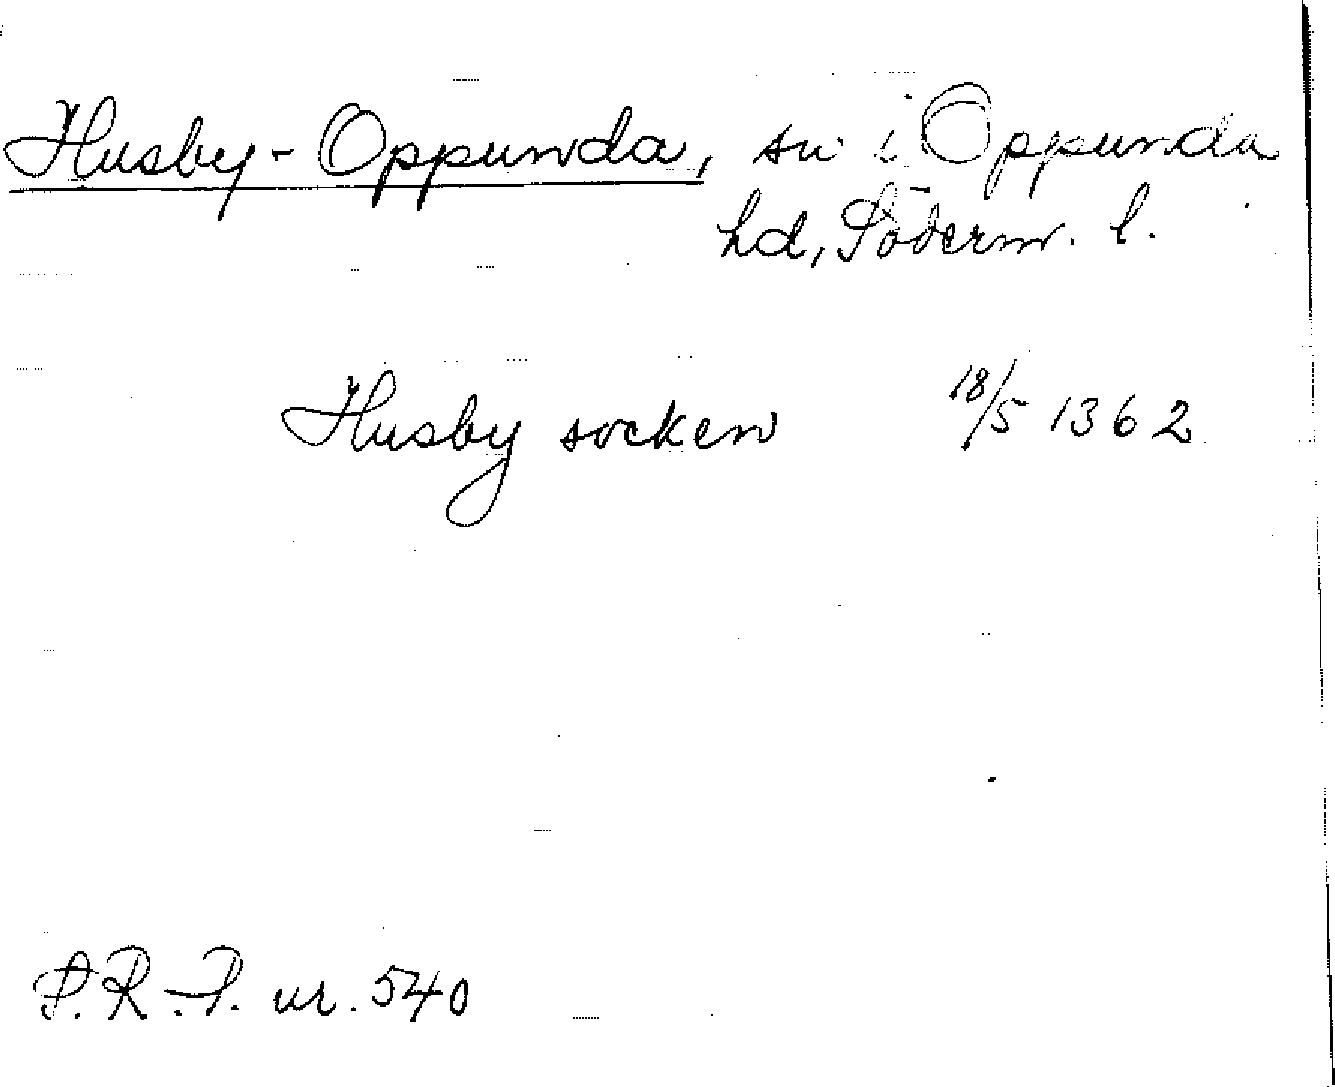 Husby-Oppunda, sn i Oppunda
hd, Söderm. l.
Husby socken 18/5 1362
S.R.P. nr. 540